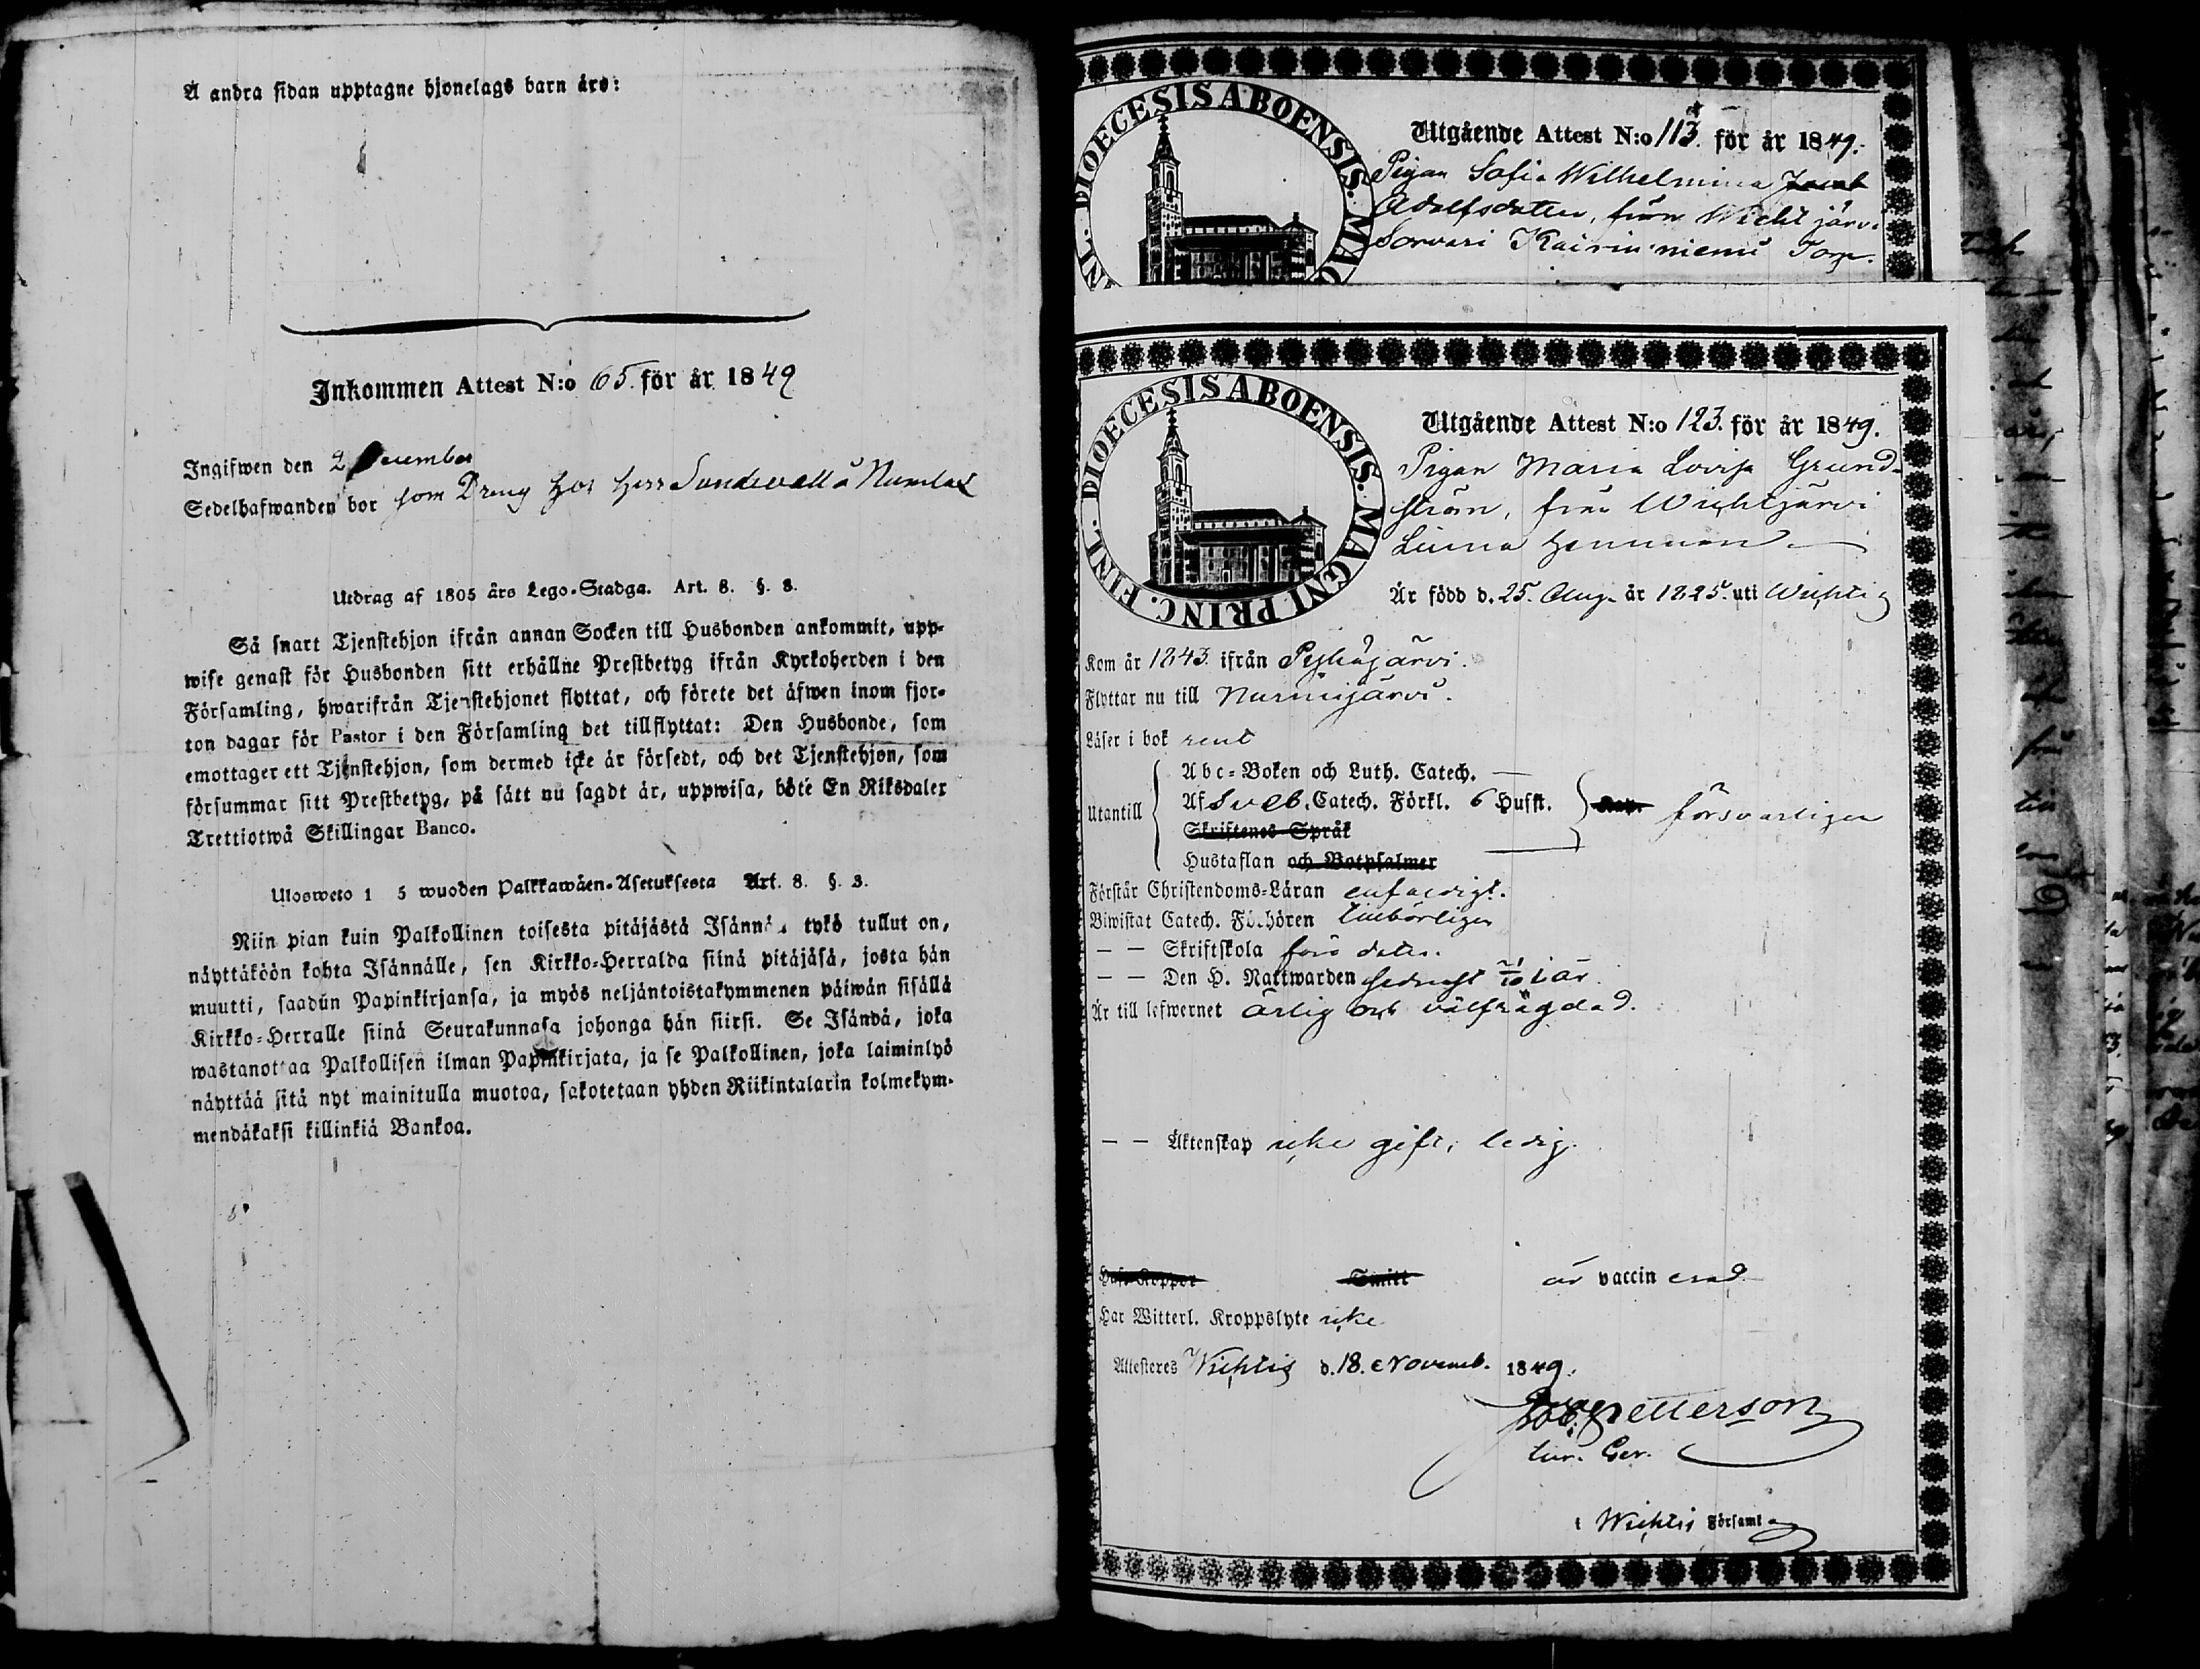 Å andra sidan upptagne hjonelags barn äro:
Inkommen Attest N:o 65. för år 1849
Ingifwen den 2 December
Sedelhafwanden bor som Dreng hos Herr Sundewall å Numlax
Utdrag af 1805 års Lego-Stadga. Art. 8. §. 3.
Så snart Tjenstehjon ifrån annan Socken till Husbonden ankommit, upp-
wise genast för Husbonden sitt erhållne Prestbetyg ifrån Kyrkoherden i den
Församling, hwarifrån Tjenstehjonet flyttat, och förete det äfwen inom fjor-
ton dagar för Pastor i den Församling det tillflyttat: Den Husbonde, som
emottager ett Tjenstehjon, som dermed icke är försedt, och det Tjenstehjon, som
försummar sitt Prestbetyg, på sätt nu sagdt är, uppwisa, böte En Riksdaler
Trettiotwå Skillingar Banco.
Ulosweto 1 5 wuoden Palkkawäen-Asetuksesta Art. 8. §. 3.
Niin pian kuin Palkollinen toisesta pitäjästä Isännä tykö tullut on,
näyttäköön kohta Isännälle, sen Kirkko-Herralda siinä pitäjäsä, josta hän
muutti, saadun Papinkirjansa, ja myös neljäntoistakymmenen päiwän sisällä
Kirkko-Herralle siinä Seurakunnasa johonga hän siirsi. Se Isändä, joka
wastanottaa Palkollisen ilman Papinkirjata, ja se Palkollinen, joka laiminlyö
näyttää sitä nyt mainitulla muotoa, sakotetaan yhden Riikintalarin kolmekym-
mendäkaksi killinkiä Bankoa.
DIOECESIS ABOENSIS. MAG
Utgående Attest N:o 113. för år 1849.
Pigan Sofia Wilhelmina
Adolfsdotter, från Wichtjärvi
Sorvari Kairinniemi Torp.
DIOECESIS ABOENSIS. MAGNI. PRINC. FINL.
Utgående Attest N:o 123. för år 1849.
Pigan Maria Lovisa Grund-
ström, från Wichtjärvi
Är född d. 25. Aug. år 1825. uti Wichtis
Kom år 1843. ifrån Pyhäjärvi.
Flyttar nu till Nurmijärvi.
Läser i bok rent
Utantill
Abc-Boken och Luth. Catech. —
Af Sveb. Catech. Förkl. 6 Husst.
försvarligen
Skriftenes Språk
Hustaflan och Botpsalmer
Förstår Christendoms-Läran enfaldigt.
Biwistat Catech. Förhören tillbörligen
— — Skriftskola förr detta.
— — Den H. Nattwarden sednast i år
Är till lefwernet ärlig och välfrägdad.
— — Äktenskap icke gift, ledig.
Haft Koppor Smitt är vaccinerad
Har Witterl. Kroppslyte icke
Attesteres Wichtis d. 18. Novemb. 1849.
Petterson
i Wichtis Församl